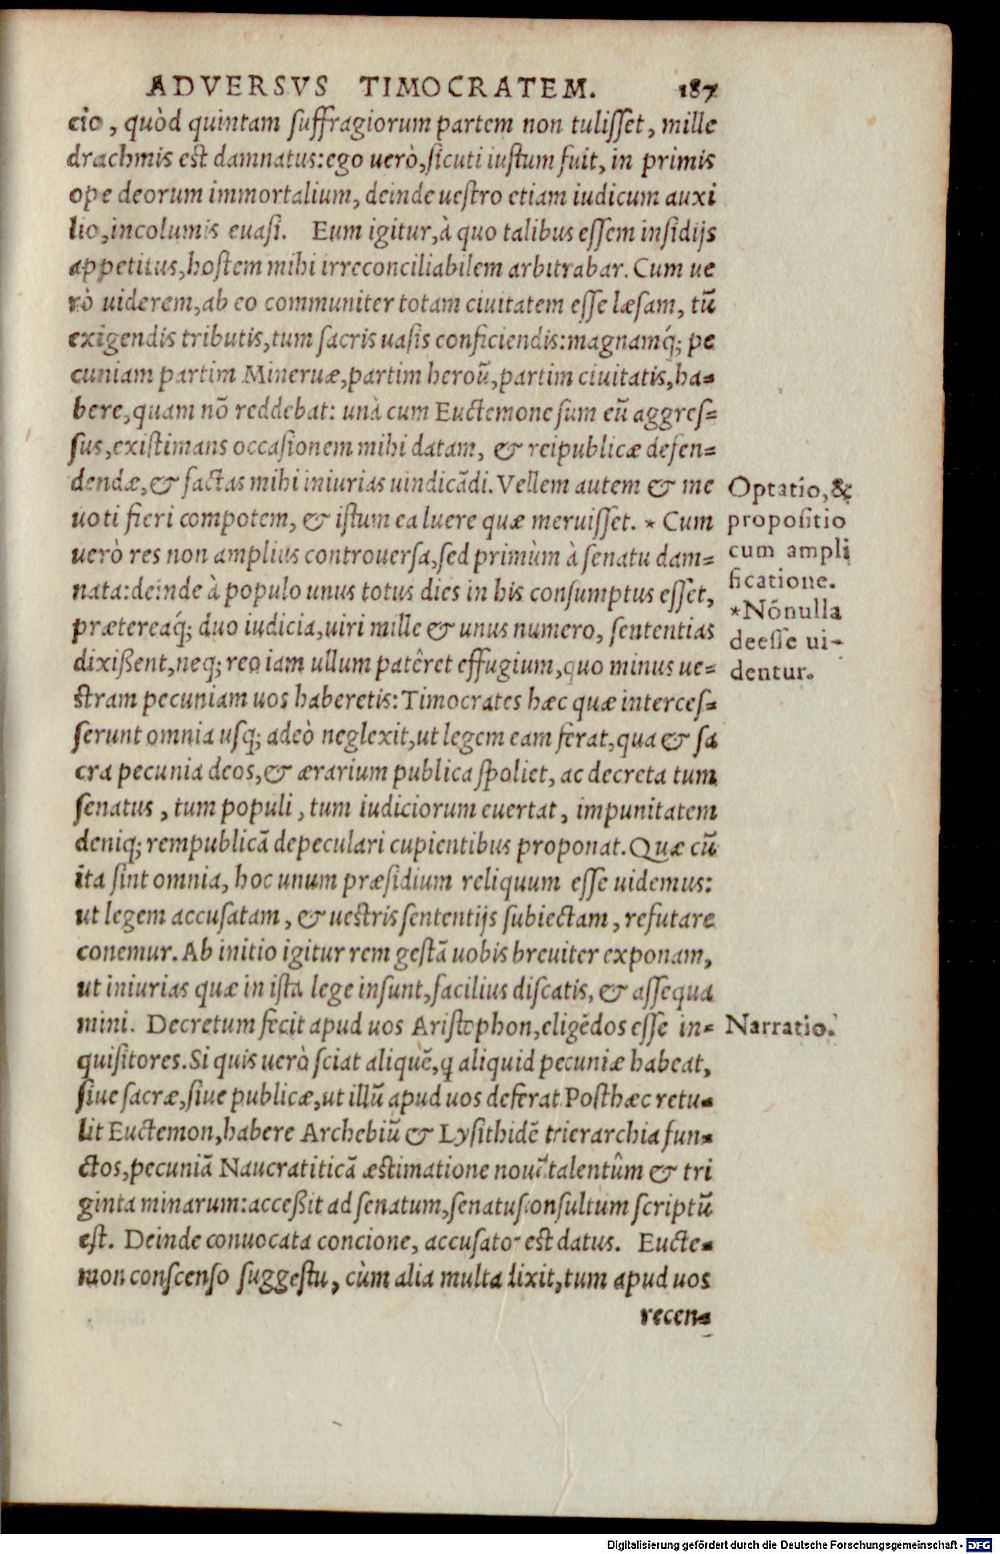 ADVERSVS TIMOCRATEM. 187
cio, quòd quintam ſuffragiorum partem non tuliſſet, mille
drachmis eſt damnatus: ego uerò, ſicuti iuſtum fuit, in primis
ope deorum immortalium, deinde ueſtro etiam iudicum auxi
lio, incolumis euaſi. Eum igitur, à quo talibus eſſem inſidijs
appetitus, hoſtem mihi irreconciliabilem arbitrabar. Cum ue
rò uiderem, ab eo communiter totam ciuitatem eſſe læſam, tū
exigendis tributis, tum ſacris uaſis conficiendis: magnamq́; pe
cuniam partim Mineruæ, partim heroū, partim ciuitatis, ha-
bere, quam nō reddebat: unà cum Euctemone ſum eū aggreſ-
ſus, exiſtimans occaſionem mihi datam, & reipublicæ defen-
dendæ, & factas mihi iniurias uindicādi. Vellem autem & me
uoti fieri compotem, & iſtum ea luere quæ meruiſſet. * Cum
uerò res non amplius controuerſa, ſed primùm à ſenatu dam-
nata: deinde à populo unus totus dies in his conſumptus eſſet,
prætereaq́; duo iudicia, uiri mille & unus numero, ſententias
dixißent, neq; reo iam ullum patêret effugium, quo minus ue-
ſtram pecuniam uos haberetis: Timocrates hæc quæ interceſ-
ſerunt omnia uſq; adeò neglexit, ut legem eam ferat, qua & ſa
cra pecunia deos, & ærarium publica ſpoliet, ac decreta tum
ſenatus, tum populi, tum iudiciorum euertat, impunitatem
deniq; rempublicā depeculari cupientibus proponat. Quæ cū
ita ſint omnia, hoc unum præſidium reliquum eſſe uidemus:
ut legem accuſatam, & ueſtris ſententijs ſubiectam, refutare
conemur. Ab initio igitur rem geſtā uobis breuiter exponam,
ut iniurias quæ in iſta lege inſunt, facilius diſcatis, & aſſequa
mini. Decretum fecit apud uos Ariſtophon, eligēdos eſſe in-
quiſitores. Si quis uerò ſciat aliquē, q aliquid pecuniæ habeat,
ſiue ſacræ, ſiue publicæ, ut illū apud uos deferat Poſthæc retu-
lit Euctemon, habere Archebiū & Lyſithidē trierarchia fun-
ctos, pecuniā Naucratiticā æſtimatione nouē talentûm & tri
ginta minarum: acceßit ad ſenatum, ſenatuſconſultum ſcriptū
eſt. Deinde conuocata concione, accuſator eſt datus. Eucte-
mon conſcenſo ſuggeſtu, cùm alia multa dixit, tum apud uos
recen-
Optatio, &
propoſitio
cum ampli
ficatione.
*Nónulla
deeſſe ui-
dentur.
Narratio.
Digitalisierung gefördert durch die Deutsche Forschungsgemeinschaft - DFG